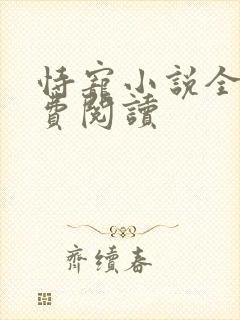 恃寵小說全
費閱讀
齊續春